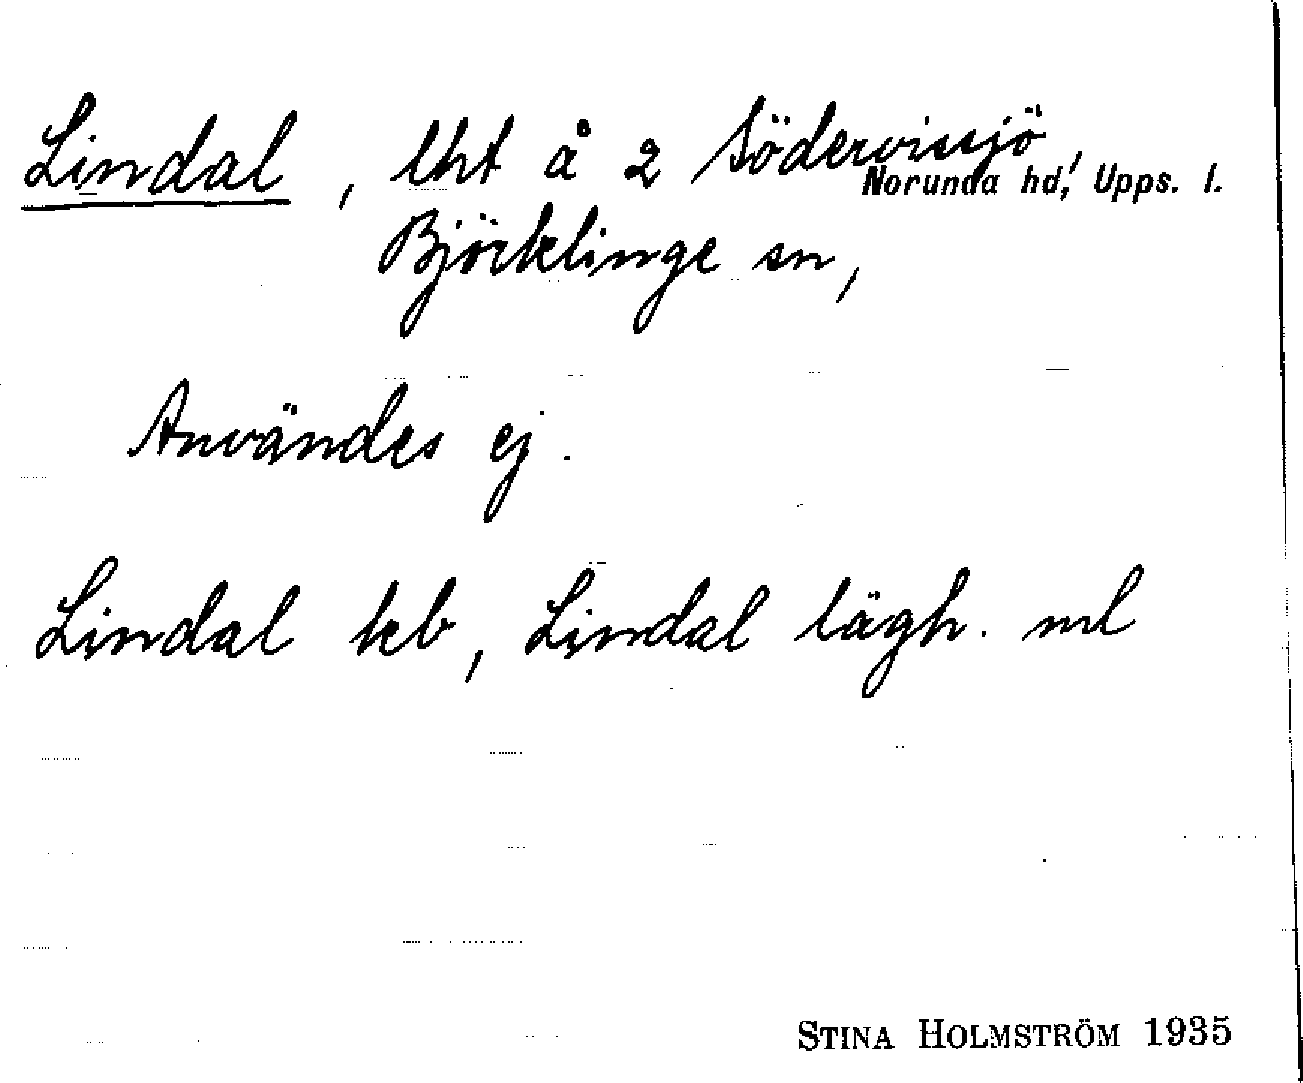 Lindal, lht å 2 Södervissjö,
Norunda hd, Upps. l.
Björklinge sn,
Användes ej.
Lindal kb, Lindal lägh. ml
STINA HOLMSTRÖM 1935